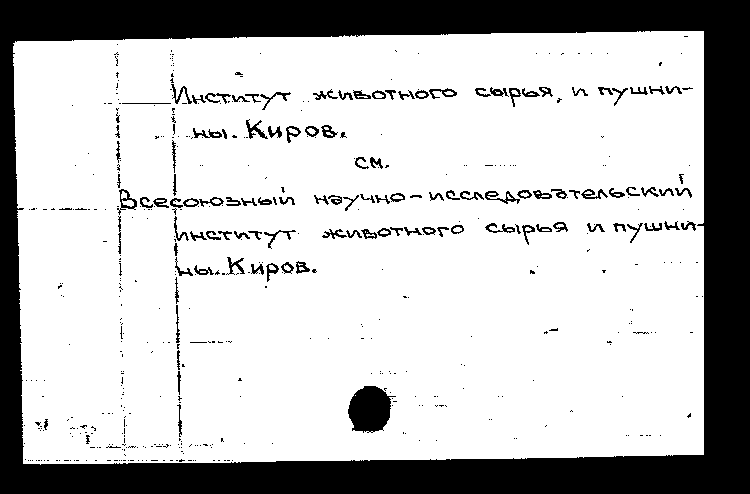 Институт животного сырья, и пушни-
ны. Киров.
см.
Всесоюзный научно-исследовательский
институт животного сырья и пушни-
ны. Киров.